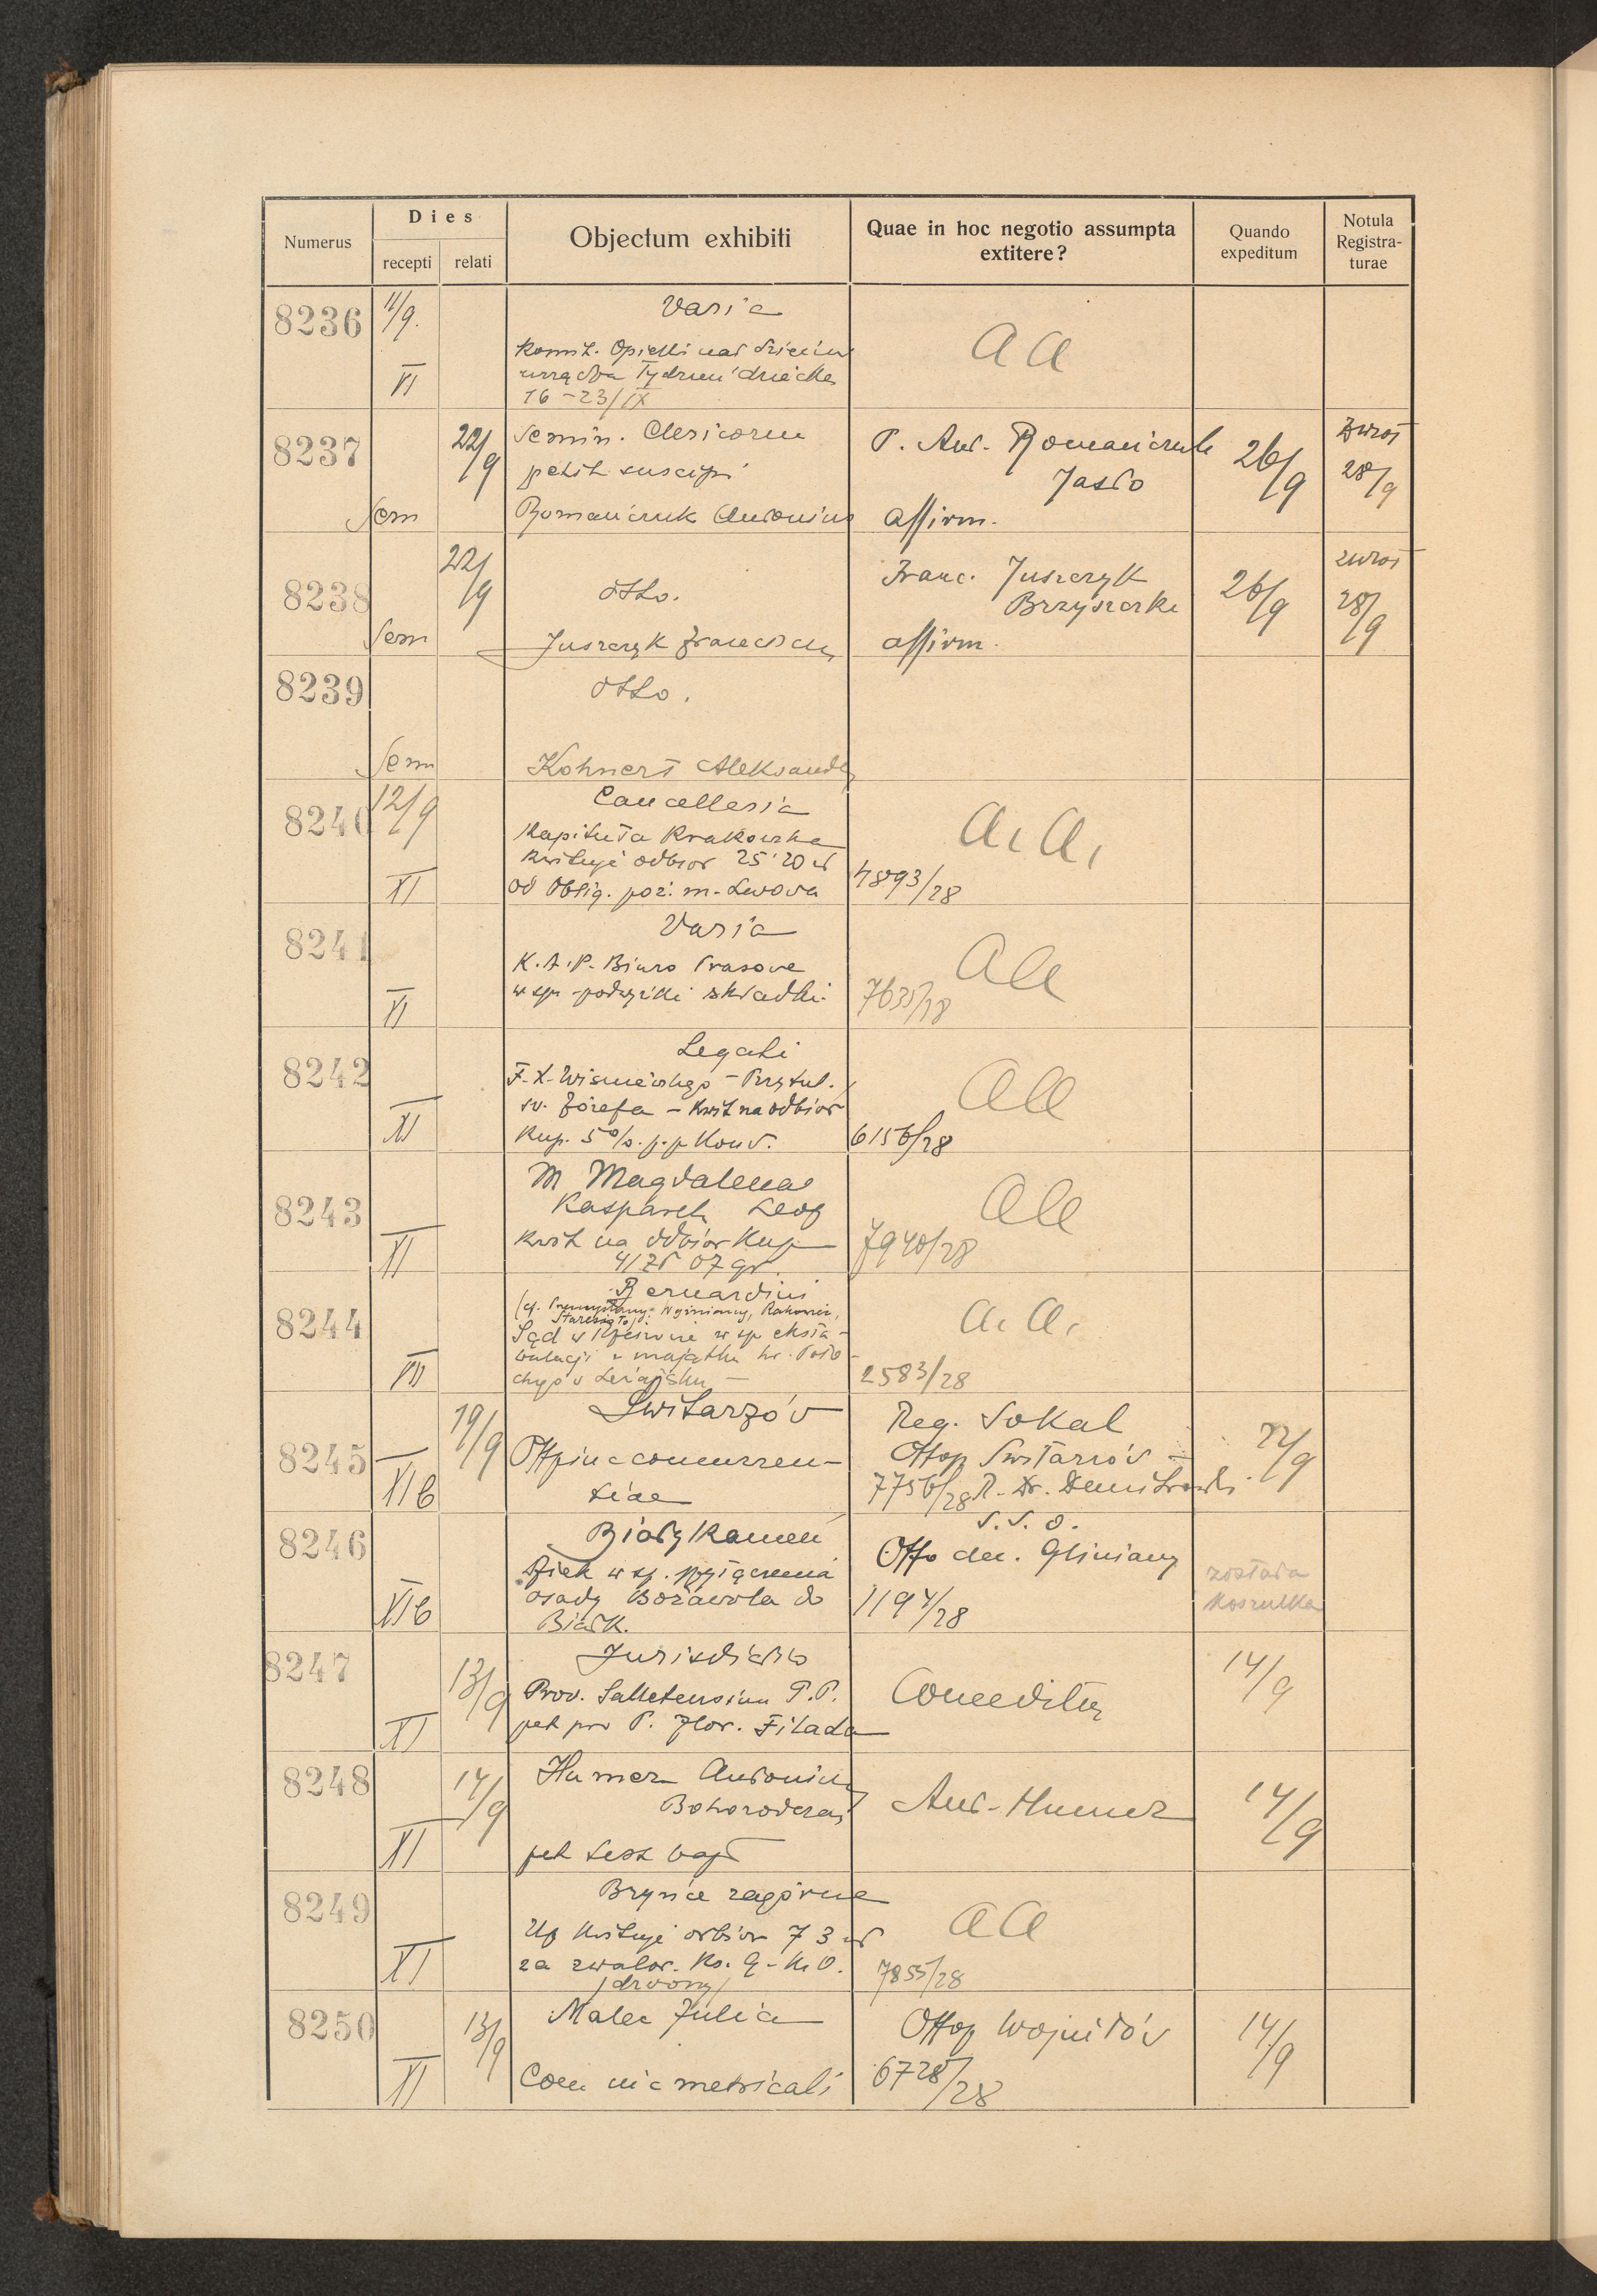 Numerus
Dies
recepti relati
Objectum exhibiti
Quae in hoc negotio assumpta
extitere?
Quando
expeditum
Notula
Registra-
turae
8236 11/9. VI
Varia
Komit. Opieki nad dziećmi
urządza Tydzień dziecka
16-23/IX
aa
8237 22/9 Sem
Semin. Clericorum
petit suscipi
Romańczuk Antonius
P. Ant. Romańczuk
Jasło
affirm.
26/9
Zwrot
28/9
8238 22/9 Sem
dtto.
Juszczyk Franciscus
Franc. Juszczyk
Brzyszczki
affirm.
26/9
zwrot
28/9
8239 Sem
dtto.
Kohnert Aleksander
8240 12/9 XI
Cancellaria
Kapituła Krakowska
kwituje odbiór 25'20 zł
od Oblig. poż. m. Lwowa
a. a.
4893/28
8241 XI
Varia
K.A.P. Biuro Prasowe
w spr podwyżki składki.
aa
7635/28
8242 XI
Legati
F.X. Wiśniewskiego - Przytul.
św. Józefa - kwit na odbiór
Kup. 5% p.p Konw.
aa
6156/28
8243 XI
M Magdalenae
Kasparek Leop
kwit na odbiór Kup
41 zł 07 gr.
aa
7940/28
8244 VII
Bernardini
Sąd w Rzeszowie w sp eksta-
bulacji z majątku hr. Poto-
ckiego w Leżajsku -
a. a.
2583/28
8245 19/9 XIb
Switarzów
Offium concurren-
tiae
Reg. Sokal
Offop Switarzów -
7756/28 R. Dr. Demitrowski
22/9
8246 XIb
Biały Kamień
Dziek w sp. przyłączenia
osady Bożawola do
Biał K.
S. S. O.
Offo dec. Gliniany
1194/28
została
koszulka
8247 13/9 XI
Jurisdictio
Prov. Salletensium P.P.
pet pro P. Flor. Filada
Conceditur
14/9
8248 14/9 XI
Humer Antonius
Bohorodczany
pet test bapt
Ant. Humer
14/9
8249 XI
Brynce zagórne
Up kwituje odbiór 73 zł
za zwalor. Ks. G-K.O.
/dzwony/
aa
7855/28
8250 13/9 XI
Malec Julia
Com nic metricali
Offop Wojniłów
6728/28
14/9